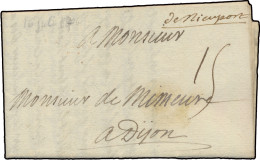 de Nieuport
A Monsieur
15
Monsieur de Mimeure
a Dijon